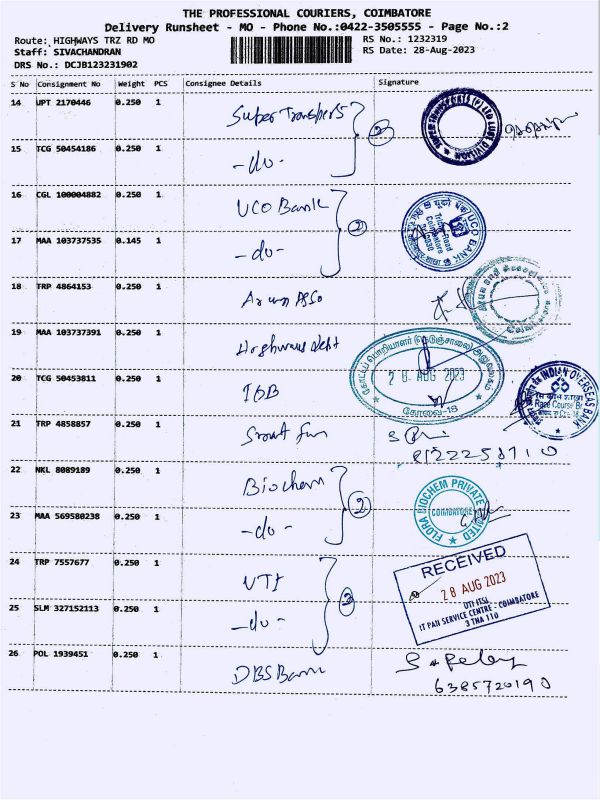 THE PROFESSIONAL COURIERS, COIMBATORE
Delivery Runsheet - MO - Phone No.:0422-3505555 - Page No.:2
Route: HIGHWAYS TRZ RD MO
RS No.: 1232319
Staff: SIVACHANDRAN
RS Date: 28-Aug-2023
DRS No.: DCJB123231902
S No Consignment No Weight PCS Consignee Details Signature
14 UPT 2170446 0.250 1 Super Transports
15 TCG 50454186 0.250 1 -do-
2
16 CGL 100004882 0.250 1 UCO Bank
17 MAA 103737535 0.145 1 -do-
2
UCO BANK
18 TRP 4864153 0.250 1 Arun Asso
19 MAA 103737391 0.250 1 Highways Dept
28 AUG 2023
கோவை-18
20 TCG 50453811 0.250 1 IOB
INDIAN OVERSEAS BANK
21 TRP 4858857 0.250 1
22 NKL 8089189 0.250 1 Biochem
23 MAA 569580238 0.250 1 -do-
2
FLORA BIOCHEM PRIVATE LIMITED
COIMBATORE
24 TRP 7557677 0.250 1 UTI
25 SLM 327152113 0.250 1 -do-
2
RECEIVED
28 AUG 2023
UTI ITSL
IT PAN SERVICE CENTRE - COIMBATORE
3 TNA 110
26 POL 1939451 0.250 1 DBS Bank
6385720190